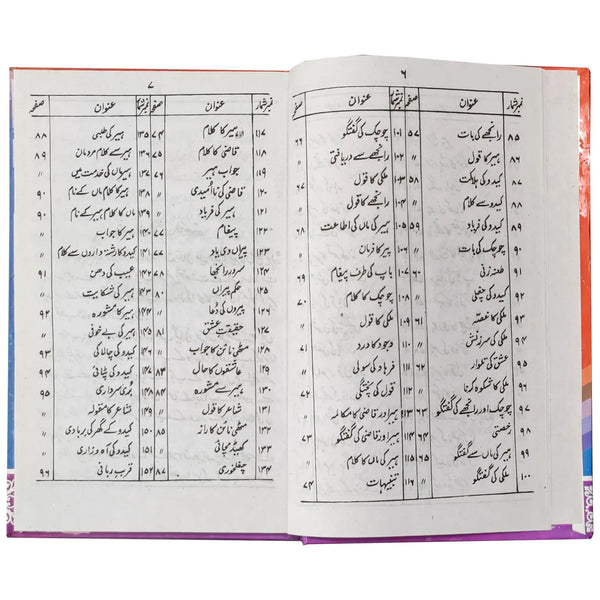 ۶
نمبر شمار عنوان صفحہ نمبر شمار عنوان صفحہ
۸۵ رانجھے کی بات ۵۷ ۱۰۱ چوچک کی گفتگو ۶۶
۸۶ ہیر کا قول ″ ۱۰۲ رانجھے سے دریافتی ″
۸۷ کیدو کی ہلاکت ۵۸ ۱۰۳ ملکی کا قول ۶۷
۸۸ کیدو سے کلام ″ ۱۰۴ رانجھے کا قول ″
۸۹ کیدو کی فریاد ۵۹ ۱۰۵ ہیر کی ماں کی اطاعت ۶۸
۹۰ چوچک کی بات ″ ۱۰۶ پیر کا زمان ″
۹۱ طعنہ زنی ۶۰ ۱۰۷ باپ کی طرف پیغام ۶۹
۹۲ کیدو کی چغلی ″ ۱۰۸ چوچک کا کلام ″
۹۳ ملکی کا غصہ ۶۱ ۱۰۹ ملکی کا قول ″
۹۴ ملکی کی سرزنش ″ ۱۱۰ وجود کا درد ۷۱
۹۵ عشق کی تلوار ″ ۱۱۱ فرہاد کی سولی ″
۹۶ ملکی کا شکوہ کرنا ″ ۱۱۲ قول کی پختگی ″
۹۷ چوچک اور رانجھے کی گفتگو ۶۳ ۱۱۳ ہیر اور قاضی کا مکالمہ ۷۲
۹۸ رخصتی ۶۴ ۱۱۴ ہیر اور قاضی کی گفتگو ۷۳
۹۹ ہیر کی ماں سے گفتگو ۶۵ ۱۱۵ ہیر کی ماں کا کلام ″
۱۰۰ ملکی کی گفتگو ″ ۱۱۶ تنبیہات ۷۴
۷
نمبر شمار عنوان صفحہ نمبر شمار عنوان صفحہ
۱۱۷ ہیر کا کلام ۷۴ ۱۳۵ ہیر کی طلبی ۸۸
۱۱۸ قاضی کا کلام ۷۵ ۱۳۶ ہیر سے کلام مردمان ۸۹
۱۱۹ جواب ہیر ۷۶ ۱۳۷ ہیر ماں کی خدمت میں ″
۱۲۰ قاضی کی ناامیدی ″ ۱۳۸ ہیر کا کلام ماں کے نام ۹۰
۱۲۱ ہیر کی فریاد ″ ۱۳۹ ماں کا کلام ہیر کے نام ۹۰
۱۲۲ پیغام ۷۷ ۱۴۰ ہیر کا جواب ″
۱۲۳ پیراں دی یاد ″ ۱۴۱ کیدو کا رشتہ داروں سے کلام ″
۱۲۴ سرور رانجھا ″ ۱۴۲ عیب کی دھن ۹۱
۱۲۵ حکم پیراں ″ ۱۴۳ ہیر کی شکایت ″
۱۲۶ پیروں کی دعا ″ ۱۴۴ ہیر کا مشورہ ۹۲
۱۲۷ حقیقت عشق ۸۱ ۱۴۵ ہیر کی بے خوفی ″
۱۲۸ مٹھی نائن کا جواب ″ ۱۴۶ کیدو کی چالاکی ۹۳
۱۲۹ عاشقوں کا حال ۸۳ ۱۴۷ کیدو کی پٹائی ۹۴
۱۳۰ ہیر سے مشورہ ۸۴ ۱۴۸ بُری سرداری ۹۵
۱۳۱ شاعر کا قول ″ ۱۴۹ شاعر کا مقولہ ″
۱۳۲ مٹھی نائن کا راز ۸۵ ۱۵۰ کیدو کے گھر کی بربادی ″
۱۳۳ کھیڈ مچائی ″ ۱۵۱ کیدو کی آہ و زاری ″
۱۳۴ چغلخوری ۸۷ ۱۵۲ قرب ربانی ۹۶